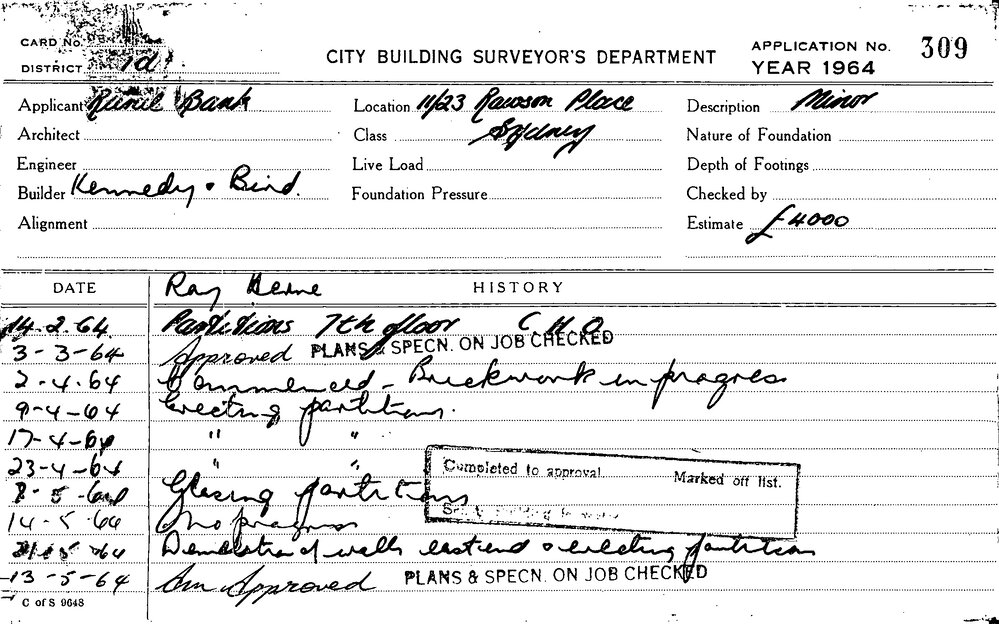 CARD No.
DISTRICT 1d
CITY BUILDING SURVEYOR'S DEPARTMENT
APPLICATION No. 309
YEAR 1964
Applicant Rural Bank
Location 11/23 Rawson Place
Description Minor
Architect
Class Sydney
Nature of Foundation
Engineer
Live Load
Depth of Footings
Builder Kennedy & Bird.
Foundation Pressure
Checked by
Alignment
Estimate £4000
DATE
Ray
HISTORY
14.2.64. Partitions 7th floor C.H.O
3-3-64 Approved PLANS & SPECN. ON JOB CHECKED
2-4-64 Commenced - Brickwork in progress
9-4-64 Erecting partitions.
17-4-64 " "
23-4-64 " "
Completed to approval Marked off list.
8-5-64 Glazing partitions
14-5-64 No progress
21-5-64 Demolition of walls east end & erecting partition
13-5-64 Am Approved PLANS & SPECN. ON JOB CHECKED
C of S 9648